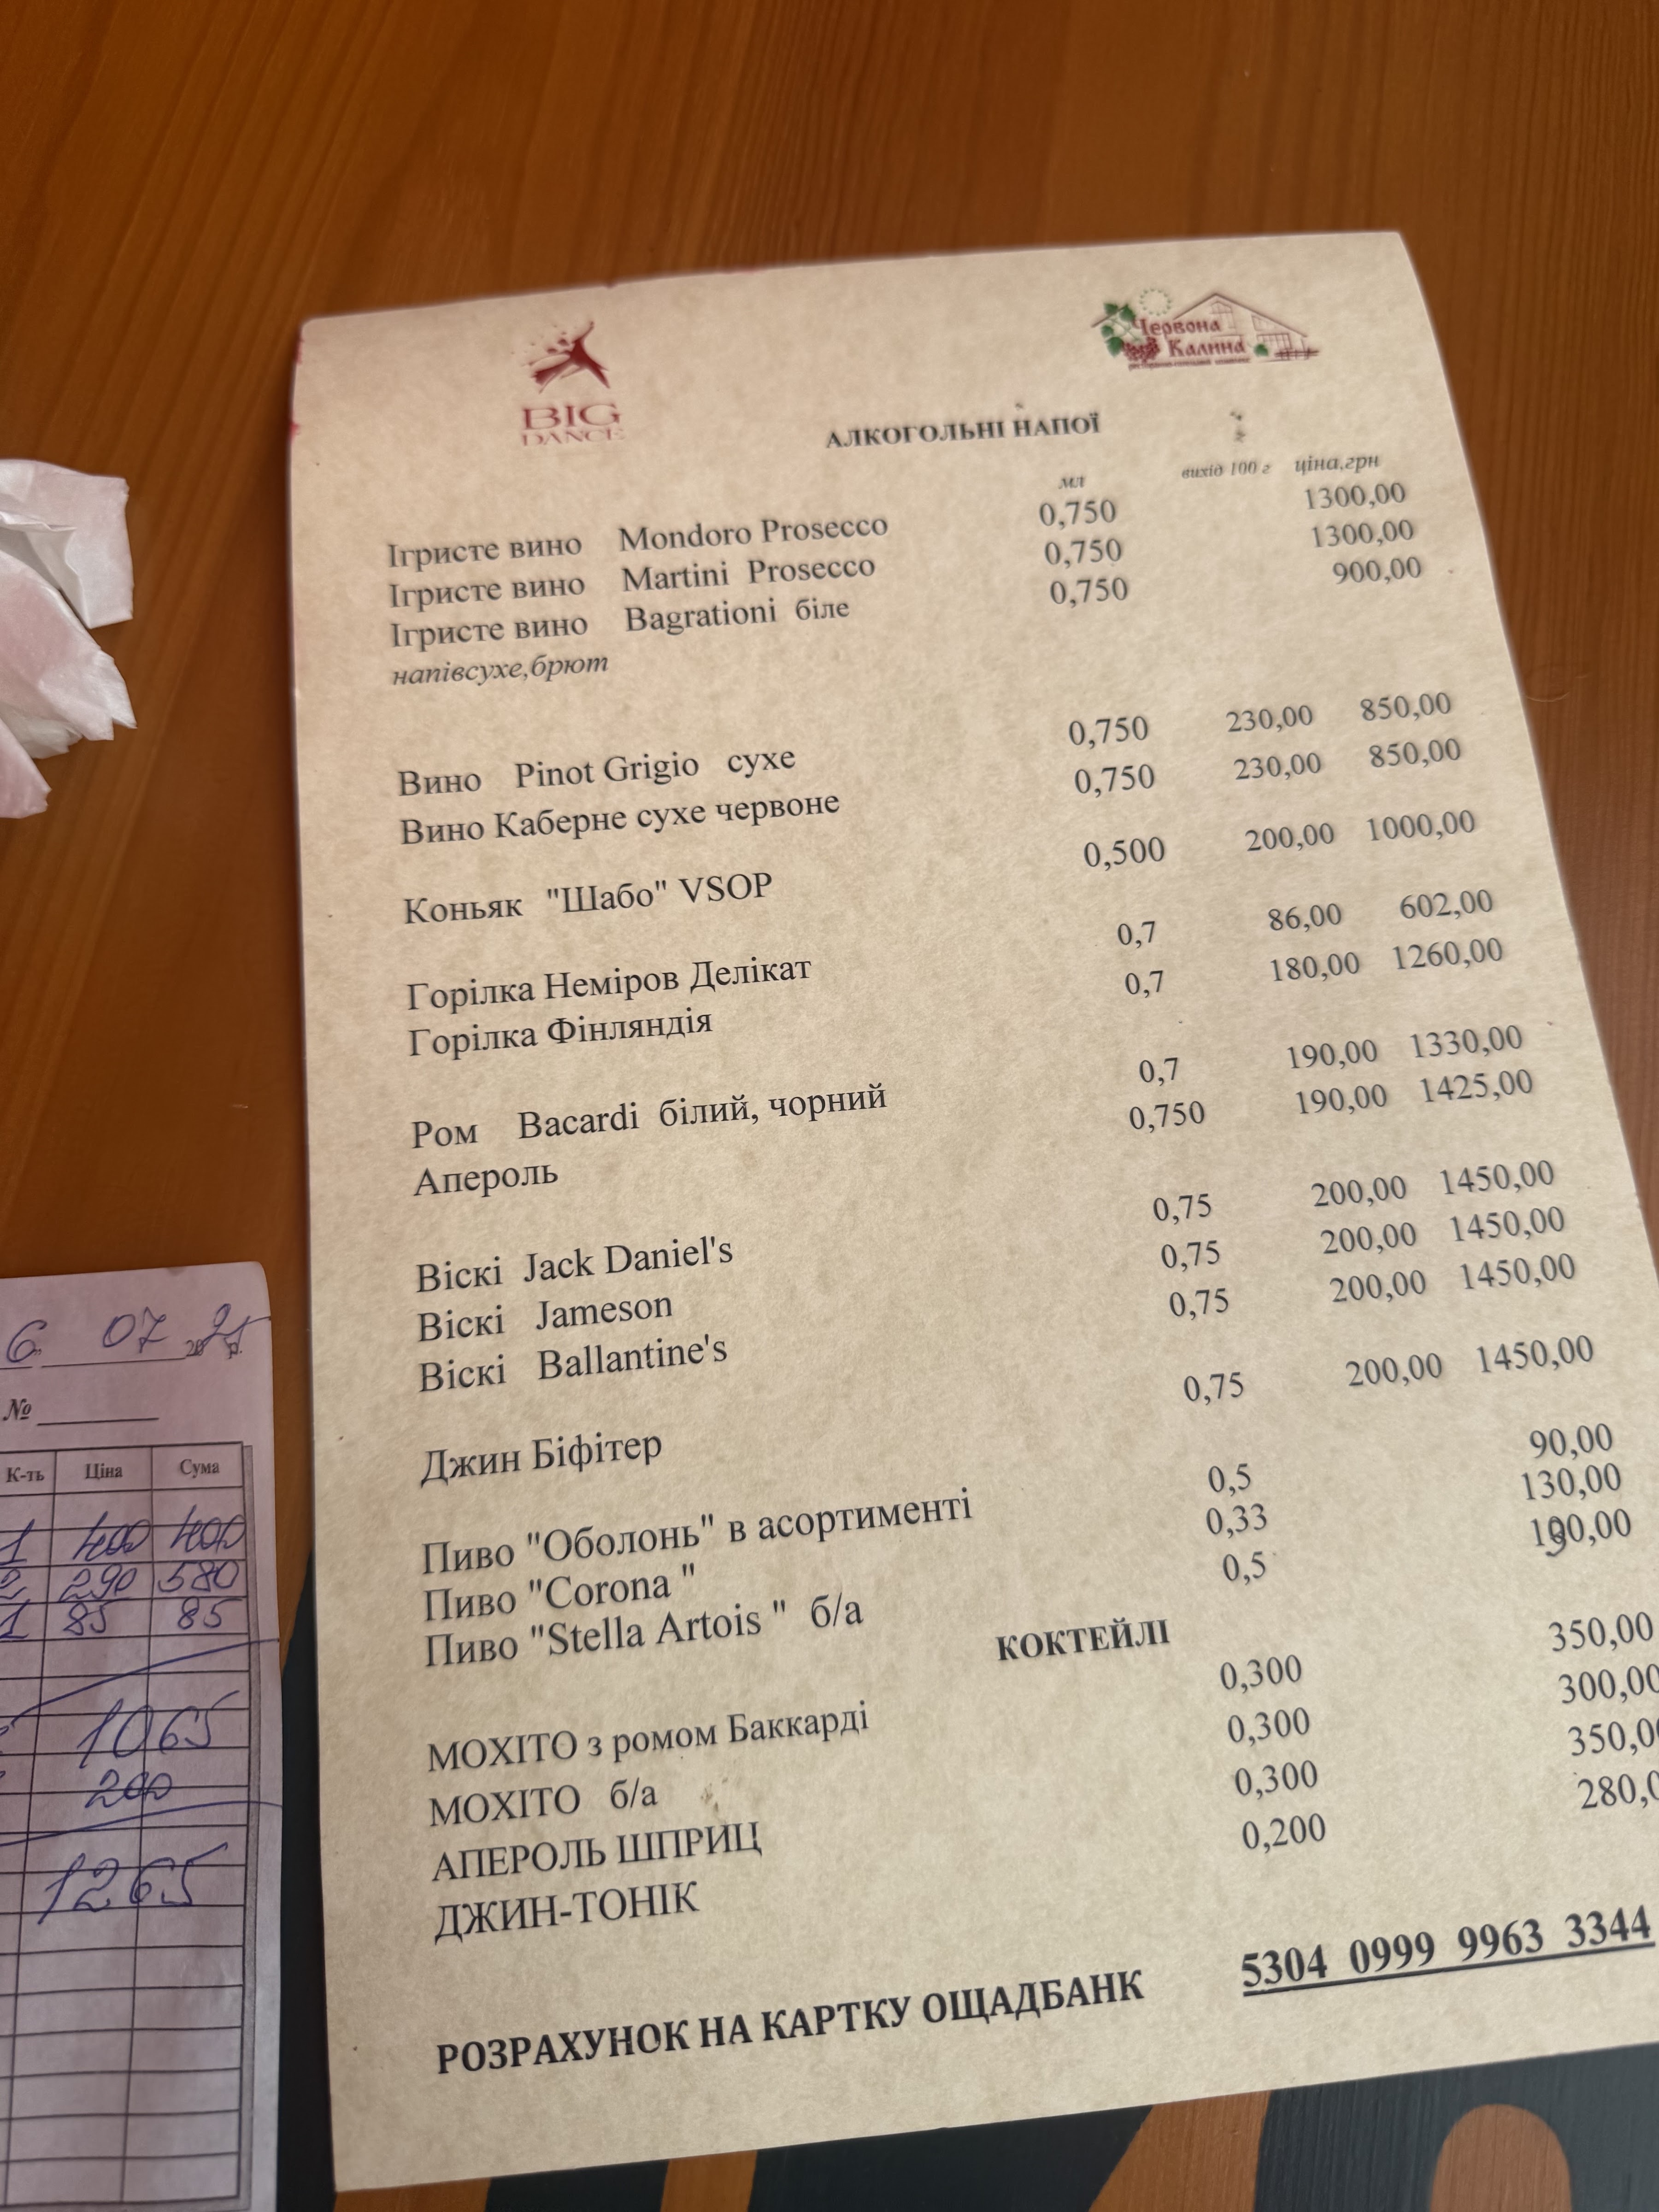 BIG
DANCE
Червона
Калина
АЛКОГОЛЬНІ НАПОЇ
мл вихід 100 г ціна,грн
Ігристе вино Mondoro Prosecco 0,750 1300,00
Ігристе вино Martini Prosecco 0,750 1300,00
Ігристе вино Bagrationi біле 0,750 900,00
напівсухе,брют
Вино Pinot Grigio сухе 0,750 230,00 850,00
Вино Каберне сухе червоне 0,750 230,00 850,00
Коньяк "Шабо" VSOP 0,500 200,00 1000,00
Горілка Неміров Делікат 0,7 86,00 602,00
Горілка Фінляндія 0,7 180,00 1260,00
Ром Bacardi білий, чорний 0,7 190,00 1330,00
Апероль 0,750 190,00 1425,00
Віскі Jack Daniel's 0,75 200,00 1450,00
Віскі Jameson 0,75 200,00 1450,00
Віскі Ballantine's 0,75 200,00 1450,00
Джин Біфітер 0,75 200,00 1450,00
Пиво "Оболонь" в асортименті 0,5 90,00
Пиво "Corona " 0,33 130,00
Пиво "Stella Artois " б/а 0,5
КОКТЕЙЛІ
МОХІТО з ромом Баккарді 0,300 350,00
МОХІТО б/а 0,300 300,00
АПЕРОЛЬ ШПРИЦ 0,300 350,0
ДЖИН-ТОНІК 0,200 280,0
РОЗРАХУНОК НА КАРТКУ ОЩАДБАНК 5304 0999 9963 3344
6 07 20 25 р.
№
К-ть Ціна Сума
1 400 400
2 290 580
1 85 85
1065
200
1265